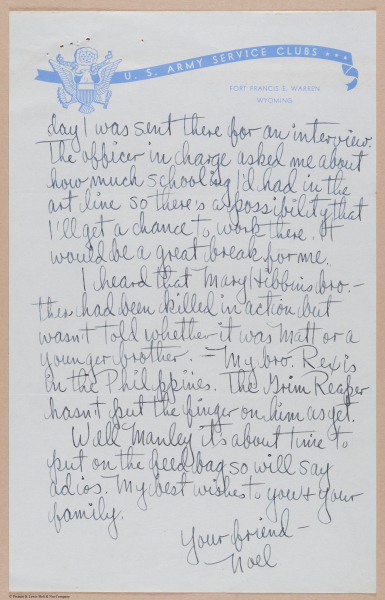 U. S. ARMY SERVICE CLUBS
FORT FRANCIS E. WARREN
WYOMING
day I was sent there for an interview.
The officer in charge asked me about
how much schooling I'd had in the
art line so there's a possibility that
I'll get a chance to work there. It
would be a great break for me.
I heard that Mary Hibbins bro.-
thers had been killed in action but
wasn't told whether it was Matt or a
younger brother. – My bro. Rex is
in the Philippines. The Grim Reaper
hasn't put the finger on him as yet.
Well Manley it's about time to
put on the feed bag so will say
adios. My best wishes to you & your
family.
Your friend –
Noel